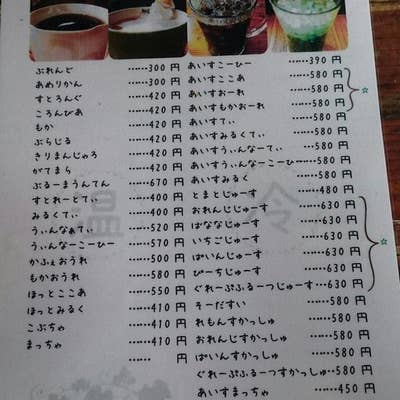 ぶれんど ……300 円
あめりかん ……300 円
すとろんぐ ……420 円
ころんびあ ……420 円
もか ……420 円
ぶらじる ……420 円
きりまんじゃろ ……420 円
がてまら ……420 円
ぶるーまうんてん ……670 円
すとれーとてぃ ……400 円
みるくてぃ ……400 円
うぃんなぁてぃ ……520 円
うぃんなーこーひー ……570 円
かふぇおうれ ……500 円
もかおうれ ……580 円
ほっとここあ ……550 円
ほっとみるく ……410 円
こぶちゃ ……410 円
まっちゃ ……410 円
…… 円
温
あいすこーひー ……390 円
あいすここあ ……580 円
あいすおーれ ……580 円 ☆
あいすもかおーれ ……580 円
あいすてぃ ……580 円
あいすみるくてぃ ……580 円
あいすうぃんなーてぃ ……580 円
あいすうぃんなーこーひー ……580 円
あいすみるく ……580 円
とまとじゅーす ……480 円
おれんじじゅーす ……630 円
ばななじゅーす ……630 円
いちごじゅーす ……630 円 ☆
ぱいんじゅーす ……630 円
ぴーちじゅーす ……630 円
ぐれーぷふるーつじゅーす ……630 円
そーだすい ……580 円
れもんすかっしゅ ……580 円
おれんじすかっしゅ ……580 円
ぱいんすかっしゅ ……580 円
ぐれーぷふるーつすかっしゅ ……580 円
あいすまっちゃ ……450 円
冷